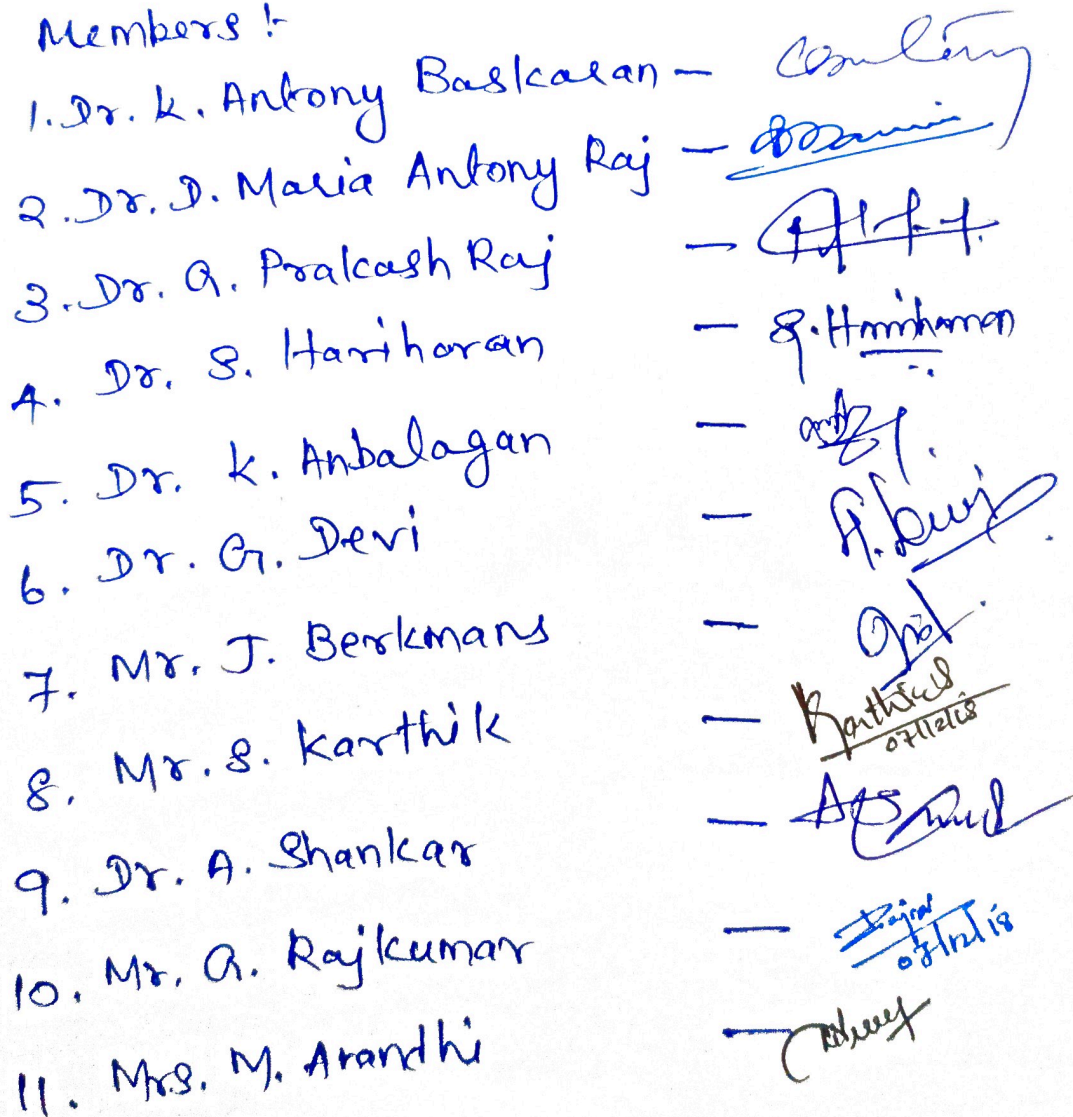 Members :-
1. Dr. K. Antony Baskaran -
2. Dr. D. Maria Antony Raj -
3. Dr. A. Prakash Raj -
4. Dr. S. Hariharan - S. Hariharan
5. Dr. K. Anbalagan -
6. Dr. G. Devi -
7. Mr. J. Berkmans -
8. Mr. S. Karthik - Karthik S
07/12/18
9. Dr. A. Shankar -
10. Mr. A. Rajkumar -
07/12/18
11. Mrs. M. Arandhi -